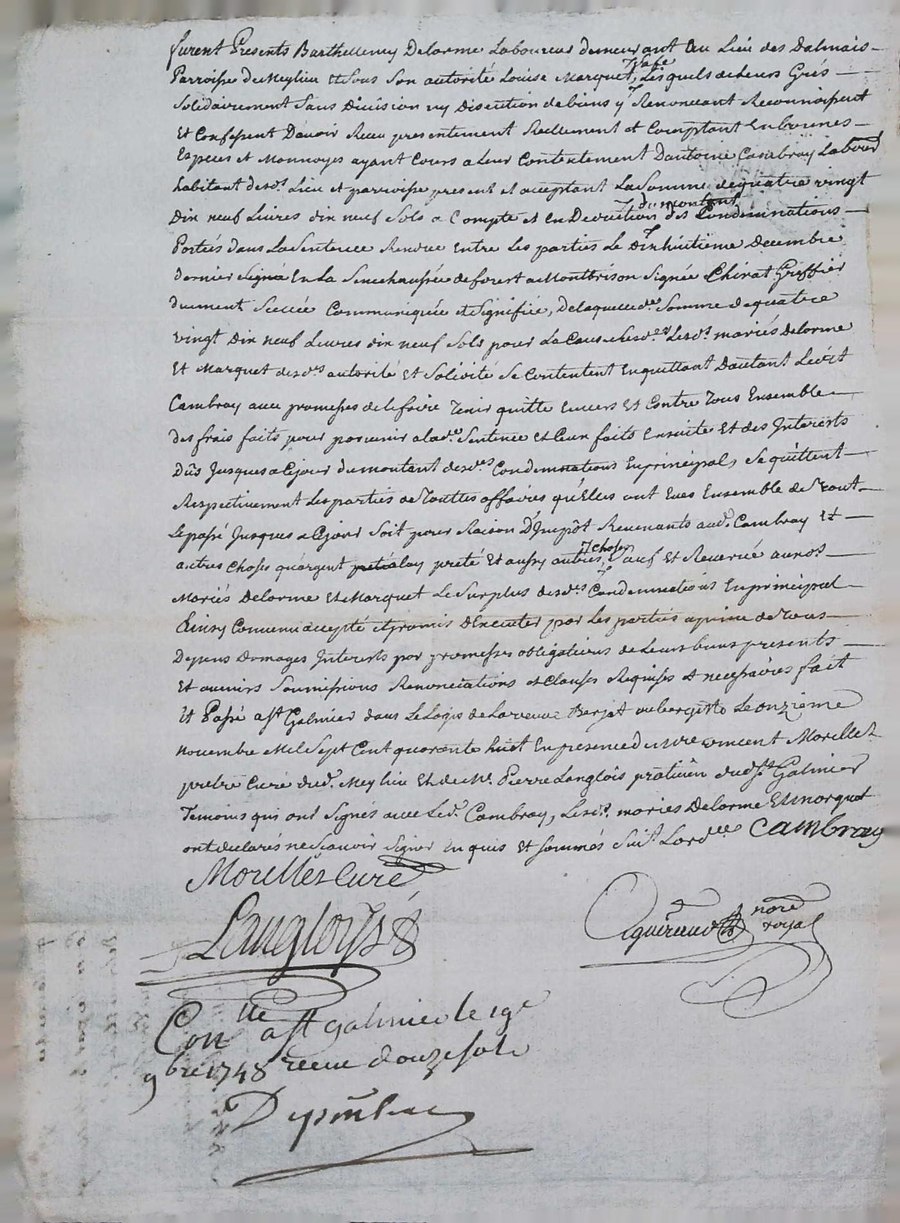 furent Presents Barthellemy Delorme Laboureur demeurant au Lieu des Dalmais
Parroisse de Meylieu et sous son autorité Louise Marquet sa fe, Lesquels de leurs Grés
solidairement sans Division ny Discution de biens y Renonceant Reconnoissent
et Confessent Davoir Receu presentement Reellement et Comptant En bonnes
Especes et Monnoyes ayant Cours a Leur Contentement Dantoine Cambray Labour
habitant desd. Lieu et parroisse present et acceptant La Somme de quatre vingt
Dix neuf Livres dix neuf Sols a Compte et en Deduction du montant des Condemnations
Portées dans La Sentence Rendue Entre Les parties Le Dix huitieme Decembre
dernier En La Senechaussée de forest a Montbrison Signée Chirat Greffier
duement Scellée Communiquée et Signifiée, De laquelle de. Somme de quatre
vingt Dix neuf Livres dix neuf Sols pour La Cause Lesd. mariés Delorme
Et Marquet desd. autorité et Solidité se Contentent En quittant Dautant Ledit
Cambray avec promesses de le faire Tenir quitte Envers et Contre Tous Ensemble
des frais faits pour parvenir a lade. Sentence et Ceux faits Ensuite et des Interests
Dûs Jusques a Ce jour du montant desdes Condemnations En principal, se quittent
Respectivement Les parties de Touttes affaires qu'Elles ont Eues Ensemble de Tout
Le passé Jusques a Ce jour Soit pour Raison D'Impôt Revenants aud. Cambray Et
autres choses qu'argent prété et aussy autres choses, auf et Reservé auxd.
Mariés Delorme et Marquet Le Surplus desdes Condemnations En principal
Ainsy Convenu accepté et promis D'Executer par Les parties a peine de Tous
Depens Domages Interests par promesses obligations de Leurs biens presents
Et avenirs Soumissions Renonciations et Clauses Requises et necessaires fait
Et Passé a St Galmier dans Le Logis de La veuve Berjat aubergiste Le onzieme
novembre Mil Sept Cent quarente huit En presence de Mre vincent Morillet
prêtre Curé dud. Meylieu et de Me. Pierre Langlois praticien dud. St Galmier
Temoins qui ont Signés avec Led. Cambray, Lesd. mariés Delorme Et Marquet
ont declarés ne Scavoir Signer Enquis et Sommés Suit. Lordce Cambray
Morillet Curé
Langloys
nore
royal
Conlle a St Galmier le 19e
9bre 1748 receu douze sols